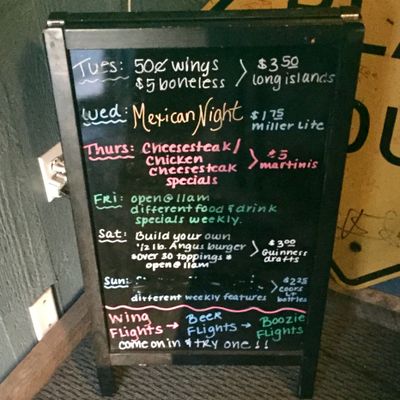 Tues: 50¢ wings
$5 boneless
$3.50
long islands
Wed: Mexican Night
$1.75
Miller Lite
Thurs: Cheesesteak/
Chicken
Cheesesteak
specials
$5
martinis
Fri: open @ 11am
different food & drink
specials weekly.
Sat: Build your own
1/2 lb. Angus burger
*over 30 toppings*
*open @ 11am*
$3.00
Guinness
drafts
Sun:
different weekly features
$2.25
Coors
LT
bottles
Wing Flights → Beer Flights → Boozie Flights
come on in & try one!!